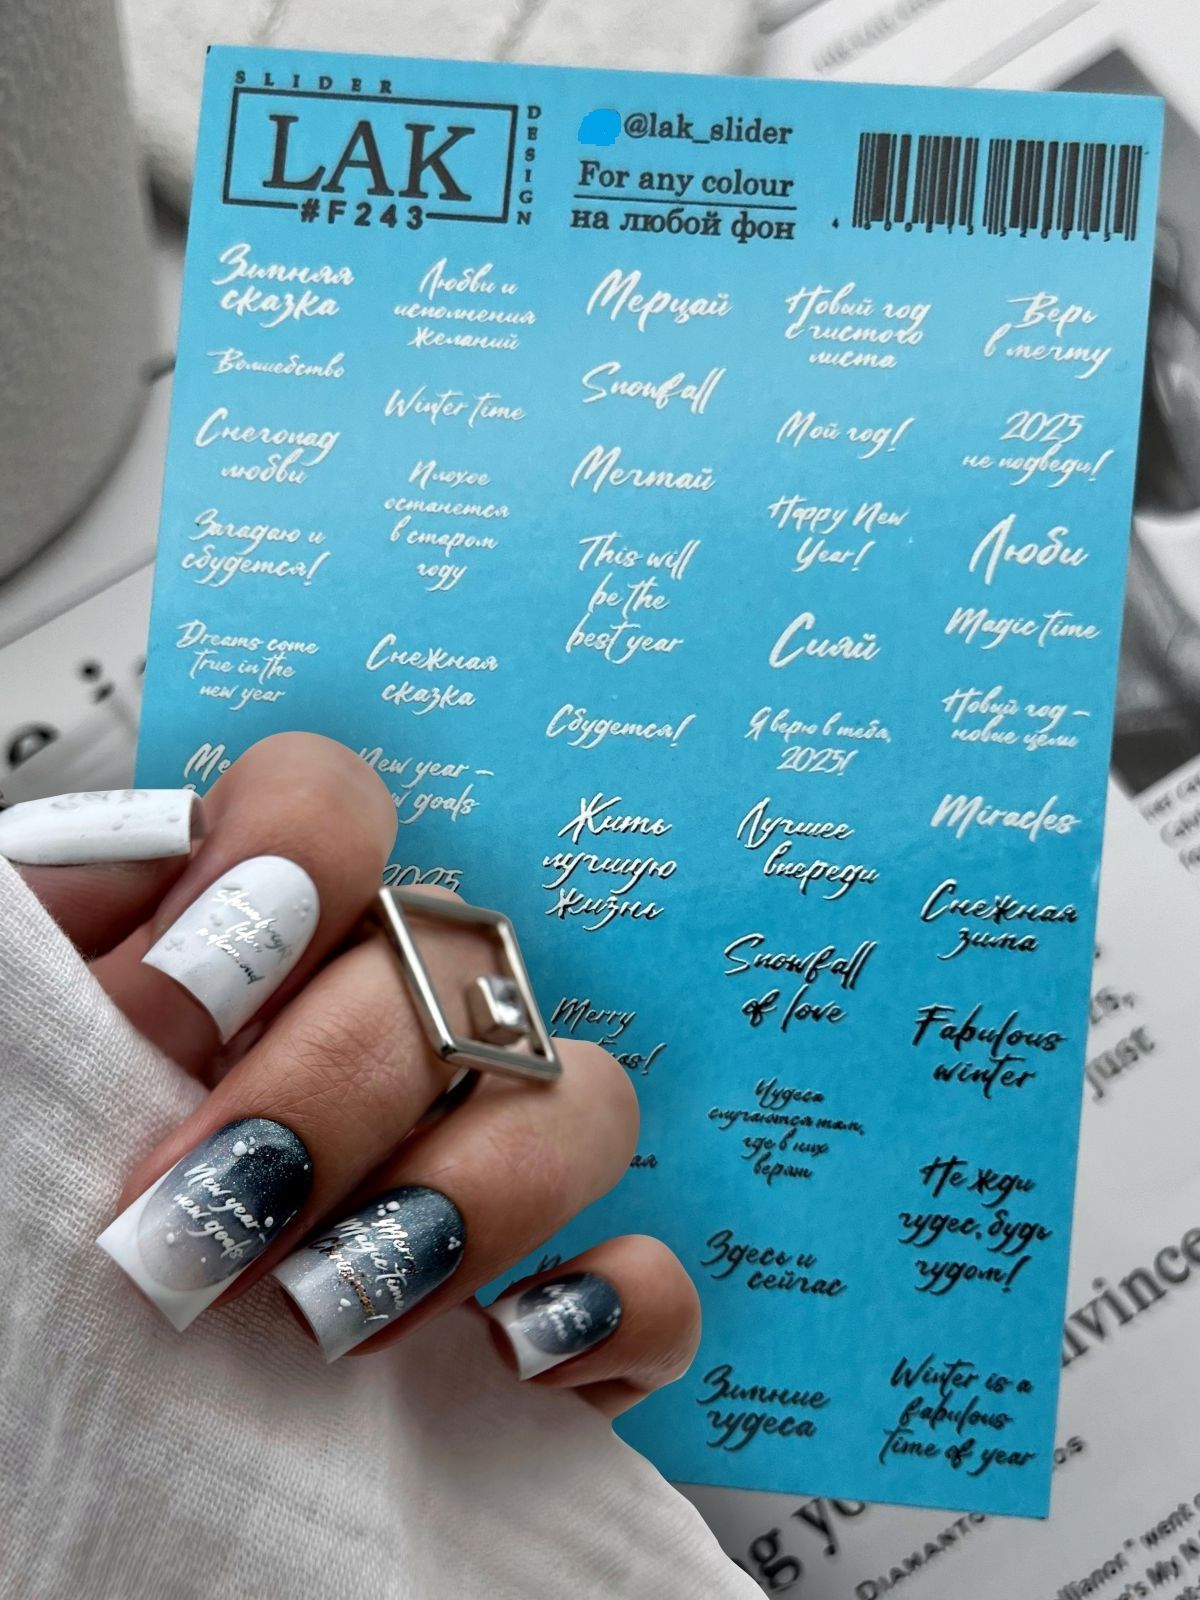 SLIDER
LAK
DESIGN
#F243
@lak_slider
For any colour
на любой фон
Зимняя
сказка
Волшебство
Снегопад
любви
Загадаю и
сбудется!
Dreams come
true in the
new year
Me
Любви и
исполнения
желаний
Winter time
Плохое
останется
в старом
году
Снежная
сказка
New year –
goals
2025
Мерцай
Snowfall
Мечтай
This will
be the
best year
Сбудется!
Жить
лучшую
жизнь
Merry
Новый год
с чистого
листа
Мой год!
Happy New
Year!
Сияй
Я верю в тебя,
2025!
Лучшее
впереди
Snowfall
of love
Чудеса
случаются там,
где в них
верят
Здесь и
сейчас
Зимние
чудеса
Верь
в мечту
2025
не подведи!
Люби
Magic time
Новый год –
новые цели
Miracles
Снежная
зима
Fabulous
winter
Не жди
чудес, будь
чудом!
Winter is a
fabulous
time of year
Shine bright
like
a diamond
New year –
new goals
Merry
Magic time
Christmas!
Winter
time
just
DIAMANT